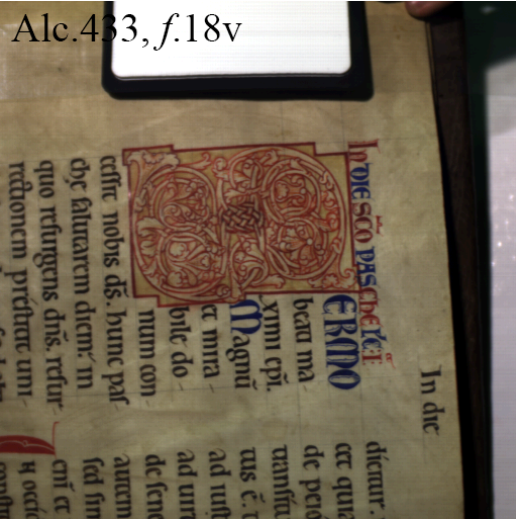 Alc.433, f.18v
In die
In DIE SCO PASChE
ERMO
beati ma
ximi epi.
Magnū
et mira
bile do
num con
cessit nobis ds. hunc pas
chę salutarem diem. in
quo resurgens dns. resur
rectionem prestitit uni
dicitur.
cet qua
de pecc
transitu
ad iust
de sene
autem
sed sin